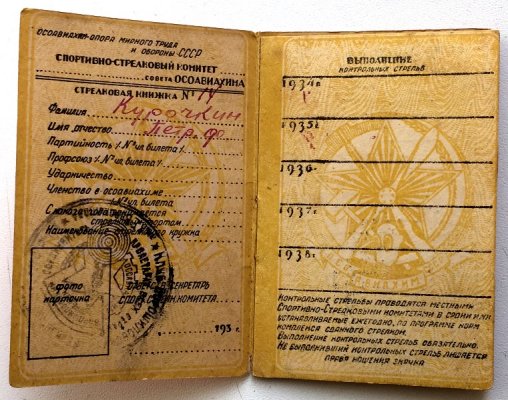 Осоавиахим-опора мирного труда
и обороны СССР
Спортивно-стрелковый комитет
совета ОСОАВИАХИМА
Стрелковая книжка № 14
Фамилия Курочкин
Имя отчество Петр Фр
Партийность и № билета
Профсоюз и № билета
Ударничество
Членство в осоавиахиме
и № билета
С какого года занимается
стрелков. спортом
Наименование стрелкового кружка
фото
карточка
Ответ. секретарь
Спор. стр. комитета
193 г.
Выполнение
контрольных стрельб
1934г.
1935г.
1936г.
1937г.
1938г.
Контрольные стрельбы проводятся местными
Спортивно-Стрелковыми комитетами в сроки и ими
устанавливаемые ежегодно, по программе норм
комплекса сданного стрелком.
Выполнение контрольных стрельб обязательно.
Не выполнивший контрольных стрельб лишается
права ношения значка